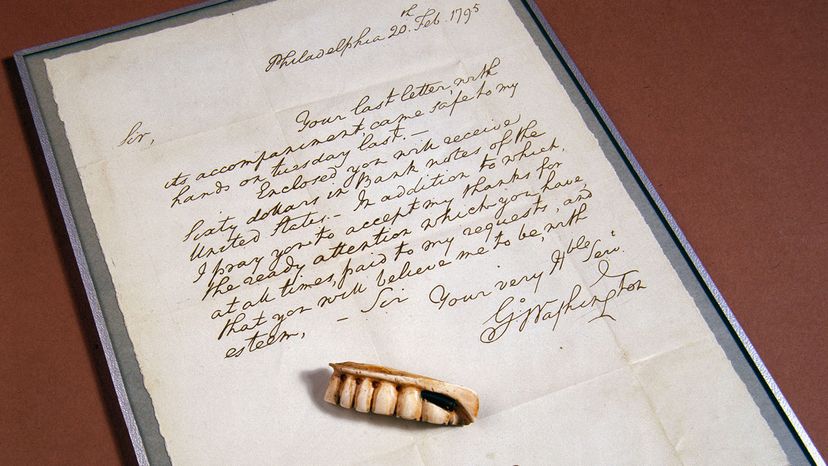 Philadelphia 20th. Feb. 1795
Sir,
Your last letter, with
its accompaniment, came safe to my
hands on tuesday last. —
Enclosed you will receive
sixty dollars in Bank notes of the
United States. — In addition to which,
I pray you to accept my thanks for
the ready attention which you have
at all times, paid to my requests, and
that you will believe me to be, with
esteem, — Sir Your very Hble Serv.
Go Washington